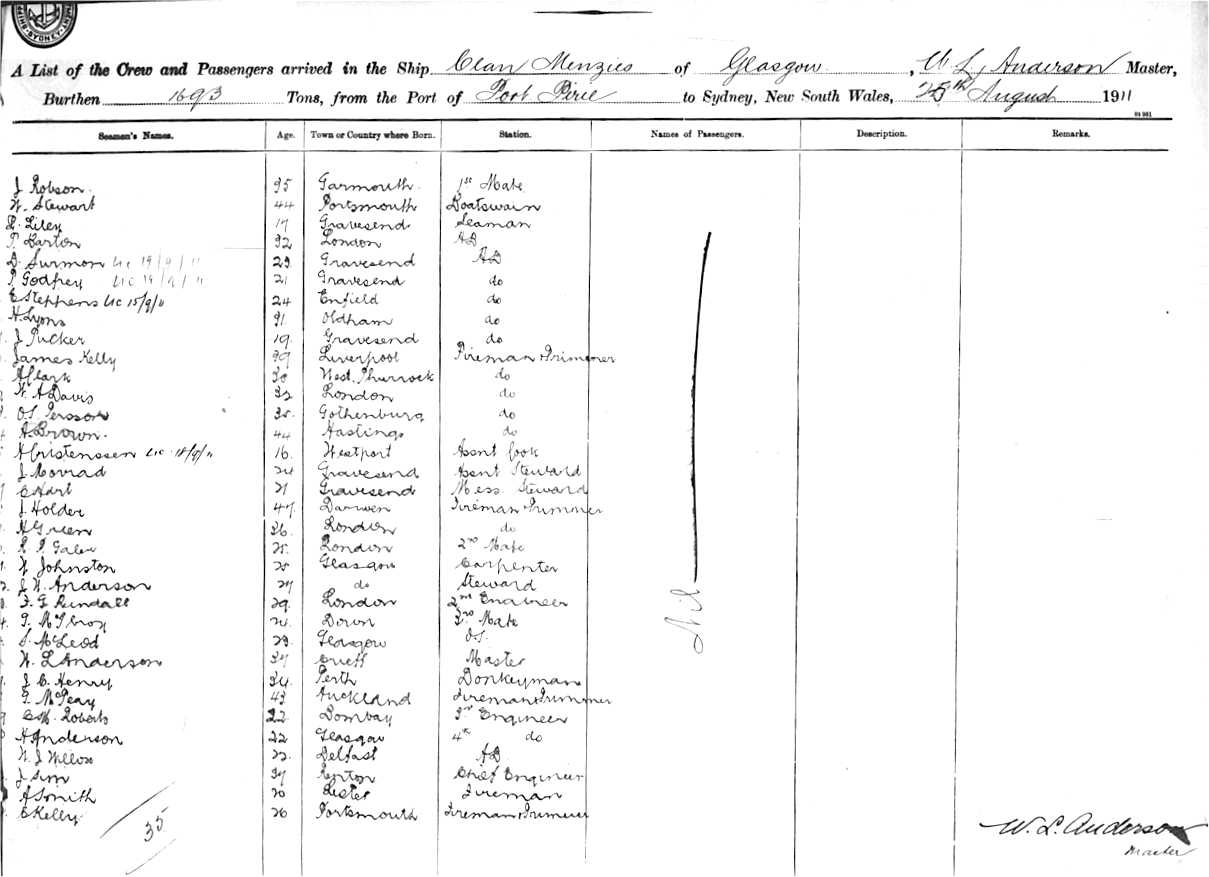 SHIPPING SYDNEY
A List of the Crew and Passengers arrived in the Ship Clan Menzies of Glasgow, W L Anderson Master,
Burthen 1693 Tons, from the Port of Port Pirie to Sydney, New South Wales, 25th August 1911
Seamen's Names. Age. Town or Country where Born. Station. Names of Passengers. Description. Remarks.
J Robson. 35 Garmouth. 1st Mate
W. Stewart 44 Portsmouth Boatswain
Liley 17 Gravesend Seaman
Barton 32 London AB
D. Surmon Lic 19/9/11 23 Gravesend AB
Godfrey Lic 19/9/11 21 Gravesend do
E Stephens Lic 15/9/11 24 Enfield do
H. Lyons 31 Oldham do
J Tucker 19 Gravesend do
James Kelly 39 Liverpool Fireman & Trimmer
A Clark 30 West Thurrock do
W. A Davis 32 London do
Persson Gothenburg do
A. Brown. 44 Hastings do
H Cristenssen Lic 18/9/11 16. Westport Asst Cook
J Conrad 24 Gravesend Asst Steward
C Hart 21 Gravesend Mess Steward
J. Holder 47 Darwen Fireman Trimmer
H Green 26. London do
Nil
London 2nd Mate
W Johnston 25 Glasgow Carpenter
J. W. Anderson 27 do Steward
F. G Rundall 29 London 2nd Engineer
McIlroy Down 3rd Mate
S. McLeod 23. Glasgow OS
W. L Anderson 37 Crieff Master
J C. Henry 34 Perth Donkeyman
43 Auckland Fireman Trimmer
Roberts 22 Bombay 3rd Engineer
A Anderson 22 Glasgow 4th do
W. J Belfast AB
J Sim 37 Renton Chief Engineer
A Smith 20 Fireman
C Kelly 26 Portsmouth Fireman & Trimmer
35
W. L. Anderson
Master